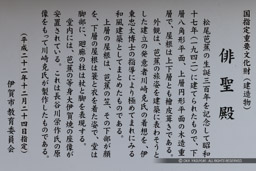 国指定重要文化財(建造物)
俳聖殿
松尾芭蕉の生誕三百年を記念して昭和
十七年(一九四二)に建てられたもので、下
層八角形平面、上層円形平面の木造重
層で、屋根は上下層とも桧皮葺である。
外観は、芭蕉の旅姿を建築にあらわそうと
した建立の発意者川崎克氏の着想を、伊
東忠太博士の指導により極めてまれにみる
和風建築としてまとめたものである。
上層の屋根は、芭蕉の笠、その下部が顔
を、下層の屋根は蓑と衣を着た姿で、堂は
脚部に、廻廊の柱は杖と脚を表現する。
堂内には、芭蕉の等身大伊賀焼の座像が
安置されている。これは長谷川栄作氏の原
像をもって川崎克氏が製作したものである。
(平成二十二年十二月二十四日指定)
伊賀市教育委員会